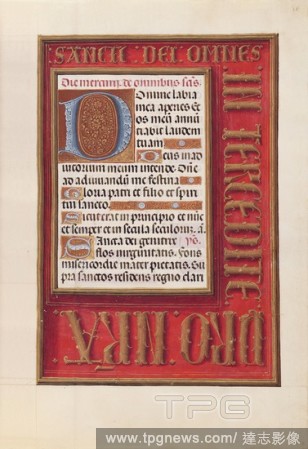 SANCTI DEI OMNES
INTERCEDITE
PRO NRA
Die mercurij de omnibus scis.
Domine labia
mea aperies Et
os meu annu
ntiabit laudem
tuam
Deus in ad
iutorium meum intende. Dne
ad adiuvandu me festina
Gloria patri et filio et spiri
tui sancto.
Sicut erat in principio et nuc
et semper et in secula seculoru. a.
Sancta dei genitrix ps.
flos virginitatis. fons
misericordie mater pietatis. Su
pra sanctos residens regno clari
TPG
www.tpgnews.com/達志影像